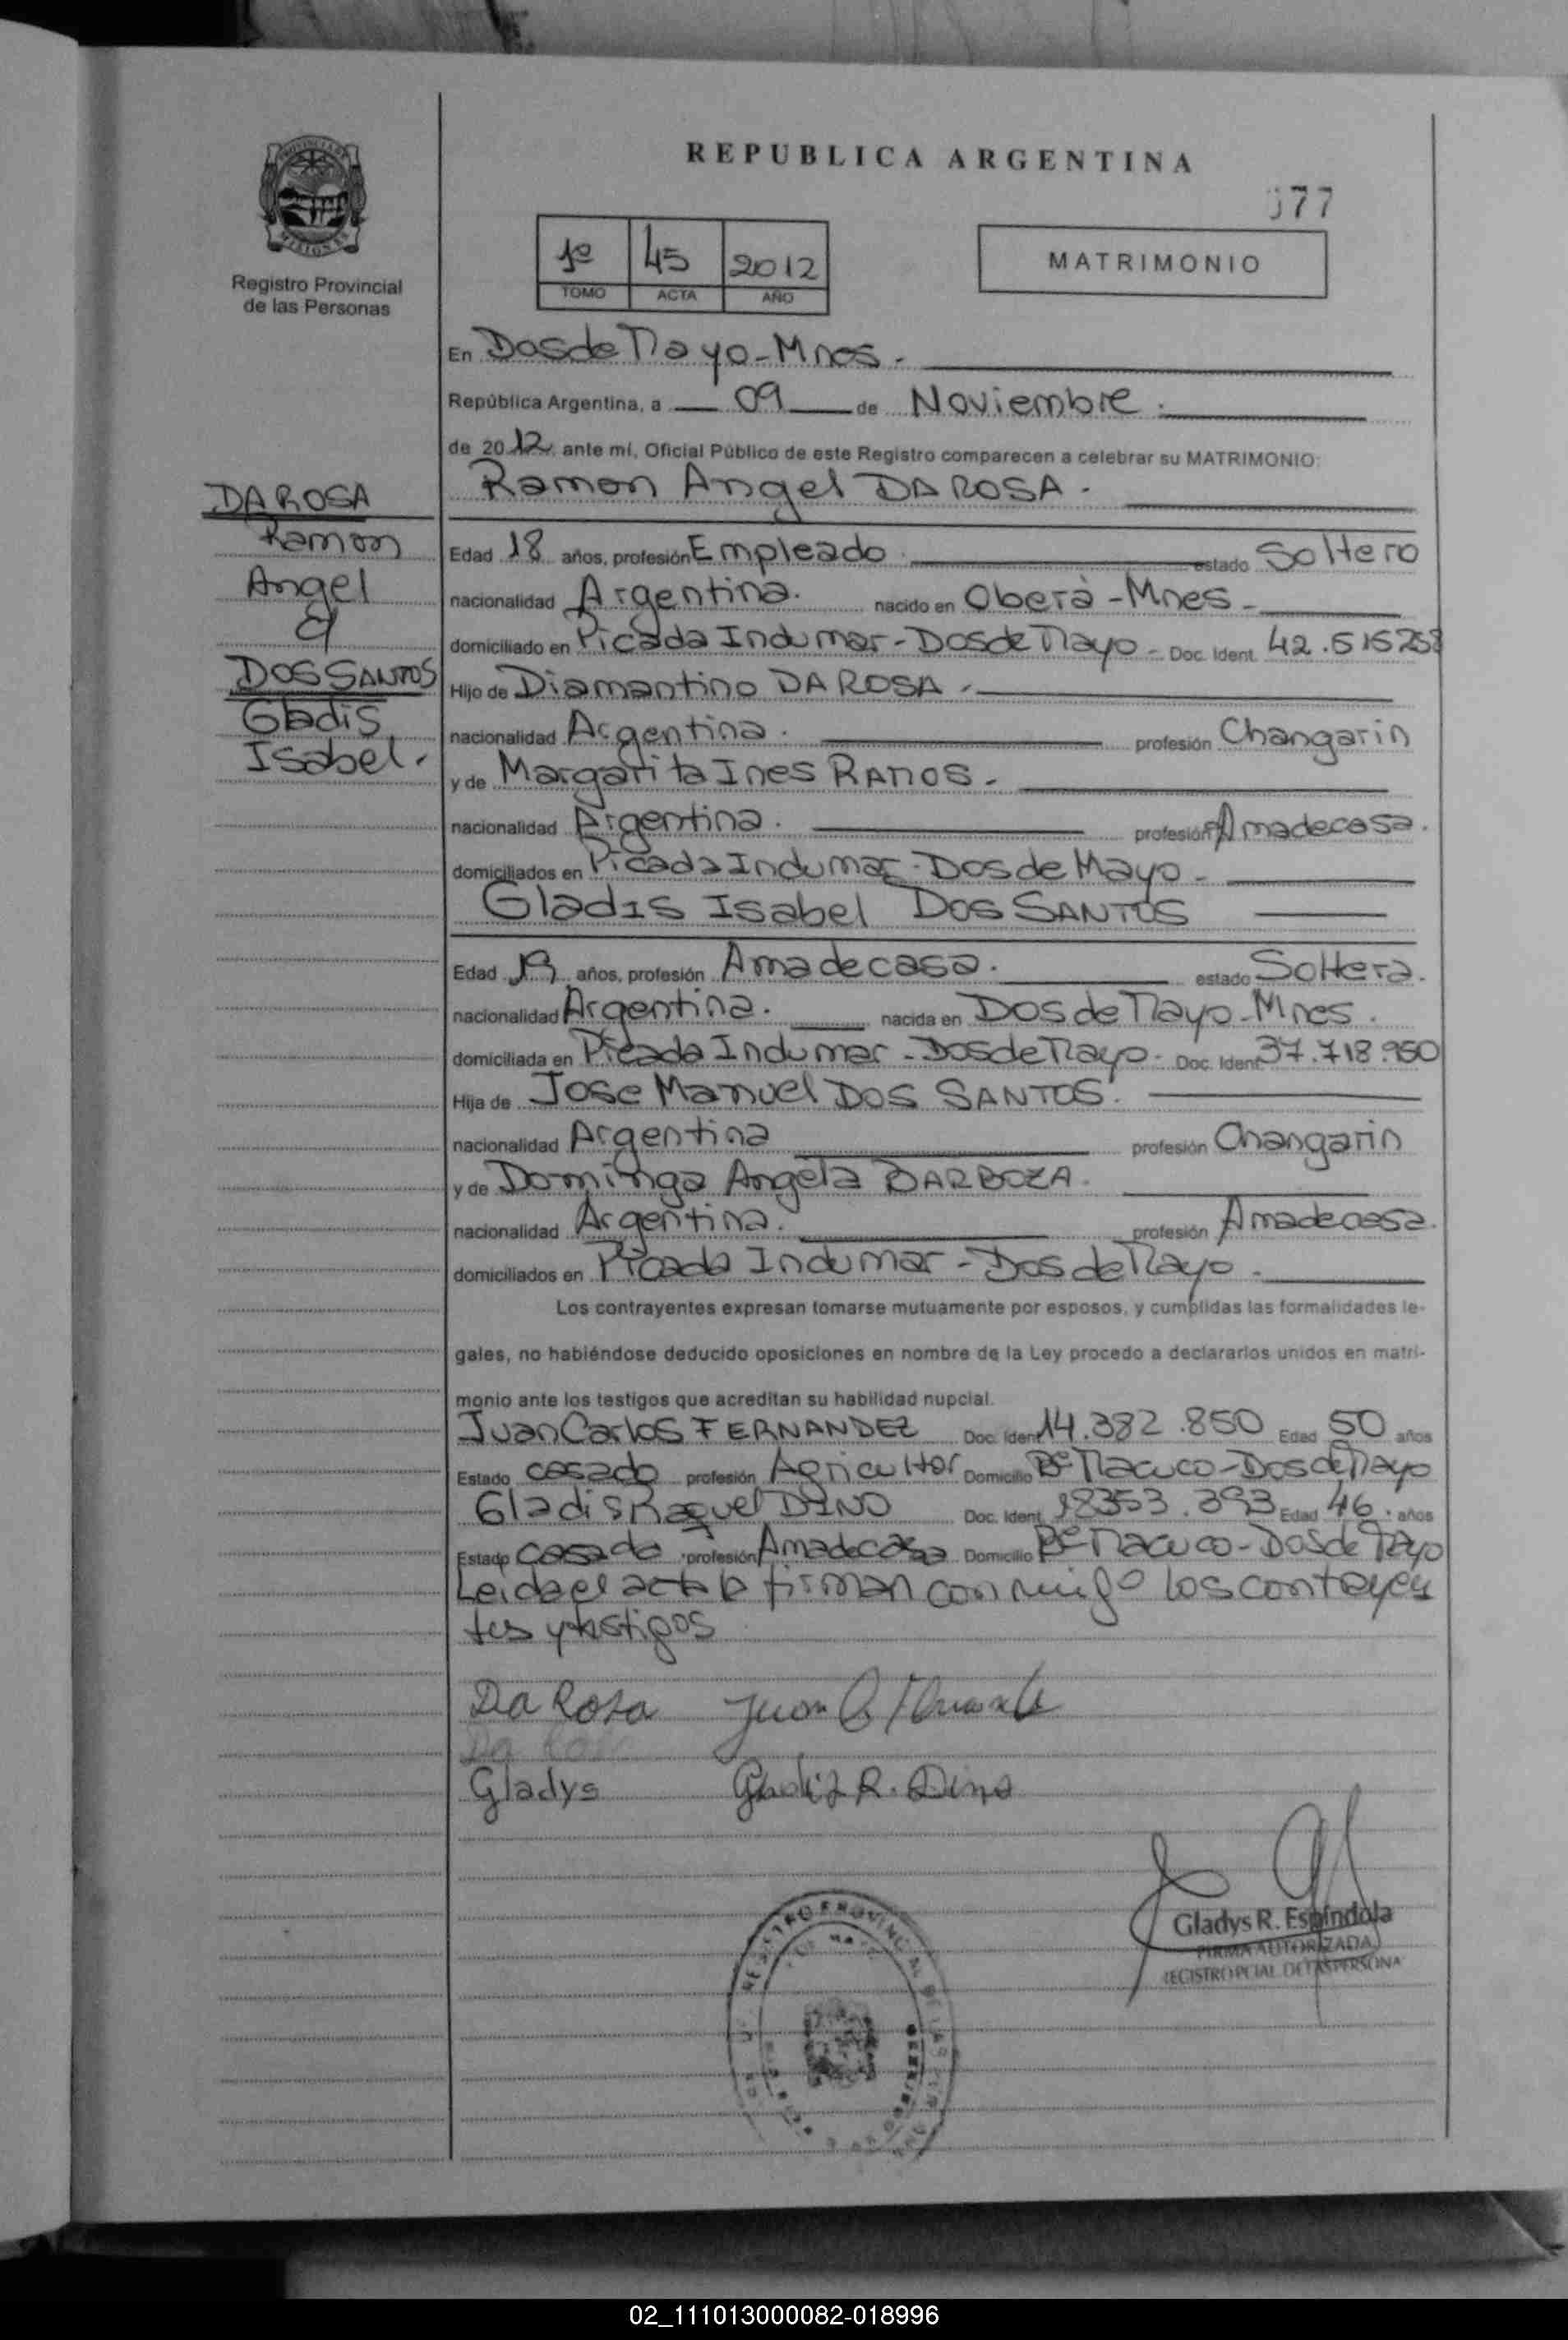 REPUBLICA ARGENTINA
077
PROVINCIA DE
MISIONES
Registro Provincial
de las Personas
1º 45 2012
TOMO ACTA AÑO
MATRIMONIO
En Dos de Mayo - Mnes.
República Argentina, a 09 de Noviembre.
de 2012 ante mí, Oficial Público de este Registro comparecen a celebrar su MATRIMONIO:
Ramon Angel DA ROSA.
DA ROSA
Ramon
Angel
&
DOS SANTOS
Gladis
Isabel.
Edad 18 años, profesión Empleado. estado Soltero
nacionalidad Argentina. nacido en Oberà - Mnes -
domiciliado en Picada Indumar - Dos de Mayo - Doc. Ident. 42.515.258
Hijo de Diamantino DA ROSA.
nacionalidad Argentina. profesión Changarin
y de Margarita Ines RAMOS.
nacionalidad Argentina. profesión Amadecasa.
domiciliados en Picada Indumar - Dos de Mayo -
Gladis Isabel DOS SANTOS
Edad 19 años, profesión Amadecasa. estado Soltera.
nacionalidad Argentina. nacida en Dos de Mayo - Mnes.
domiciliada en Picada Indumar - Dos de Mayo - Doc. Ident. 37.718.950
Hija de Jose Manuel DOS SANTOS.
nacionalidad Argentina profesión Changarin
y de Dominga Angela BARBOZA.
nacionalidad Argentina. profesión Amadecasa.
domiciliados en Picada Indumar - Dos de Mayo.
Los contrayentes expresan tomarse mutuamente por esposos, y cumplidas las formalidades le-
gales, no habiéndose deducido oposiciones en nombre de la Ley procedo a declararlos unidos en matri-
monio ante los testigos que acreditan su habilidad nupcial.
Juan Carlos FERNANDEZ Doc. Ident. 14.382.850 Edad 50 años
Estado casado profesión Agricultor Domicilio Bº Macuco - Dos de Mayo
Gladis Raquel DINO Doc. Ident. 18353.393 Edad 46 años
Estado casado profesión Amadecasa Domicilio Bº Macuco - Dos de Mayo
Leida el acta la firman con migo los contrayen
tes y testigos
Da Rosa Juan C
Gladys Gladis R. Dino
Gladys R. Espíndola
FIRMA AUTORIZADA
REGISTRO PCIAL. DE LAS PERSONA
02_111013000082-018996